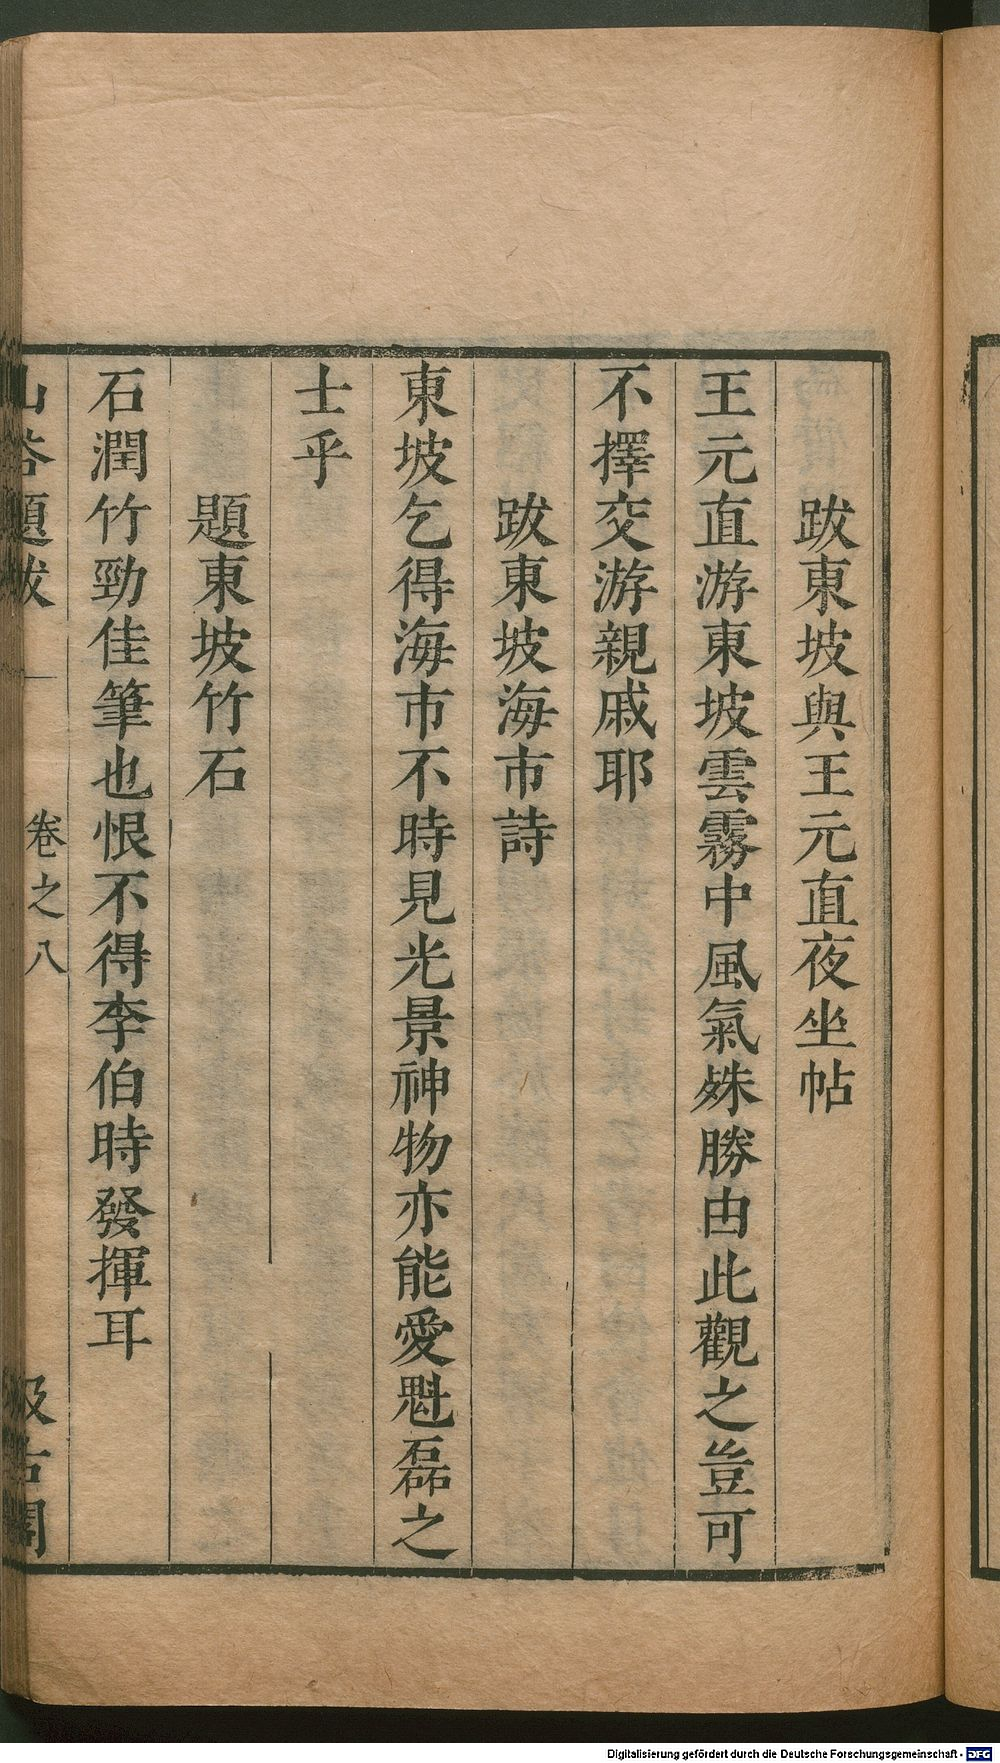 跋東坡與王元直夜坐帖
王元直游東坡雲霧中風氣殊勝由此觀之豈可
不擇交游親戚耶
跋東坡海市詩
東坡乞得海市不時見光景神物亦能愛魁磊之
士乎
題東坡竹石
石潤竹勁佳筆也恨不得李伯時發揮耳
山谷題跋
卷之八
汲古閣
Digitalisierung gefördert durch die Deutsche Forschungsgemeinschaft - DFG